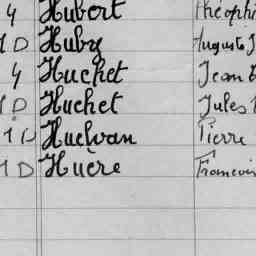 4 Hubert Théophi
1 D Huby Auguste J
4 Huchet Jean
1 D Huchet Jules
1 D Huelvan Pierre
1 D Huère Francois